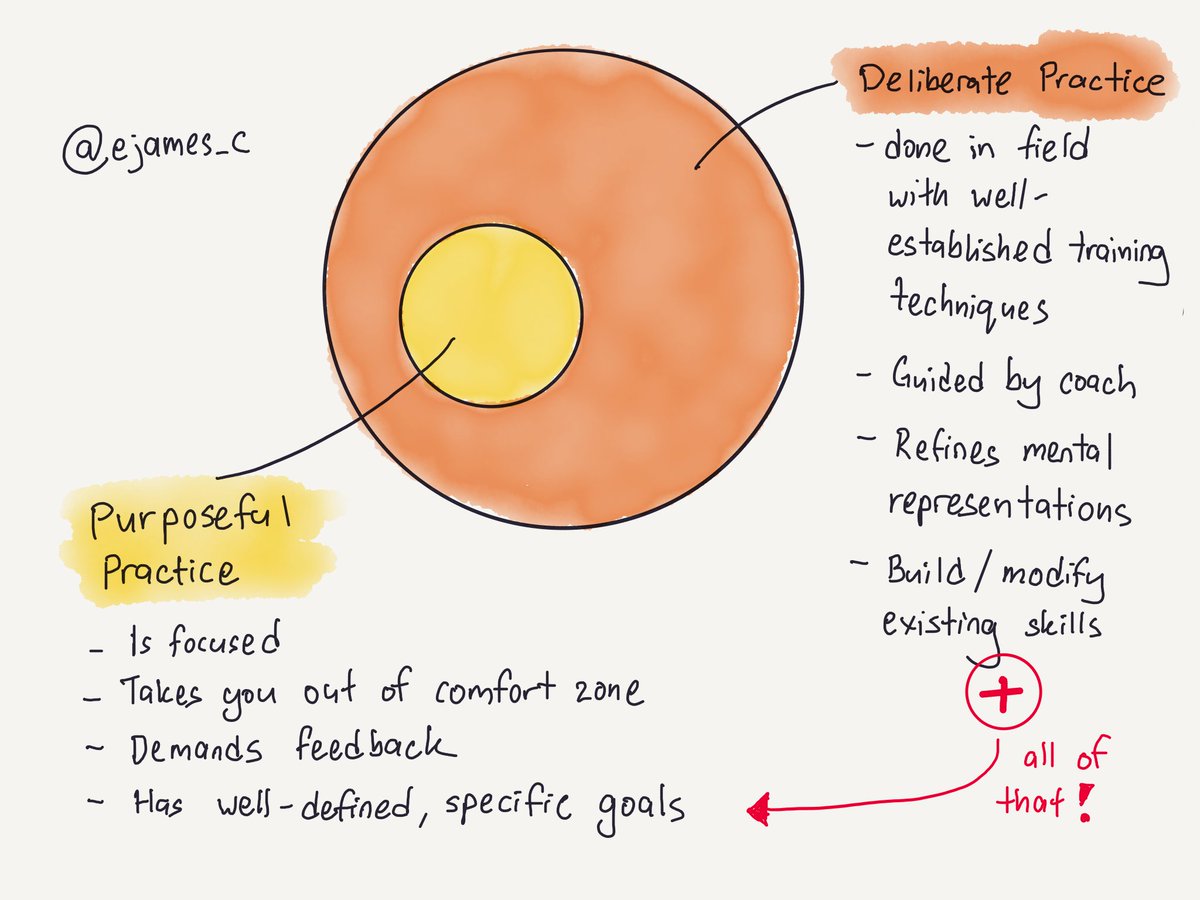 @ejames_c
Deliberate Practice
- done in field
with well-
established training
techniques
- Guided by coach
- Refines mental
representations
- Build/modify
existing skills
+
all of
that!
Purposeful
Practice
- Is focused
- Takes you out of comfort zone
- Demands feedback
- Has well-defined, specific goals